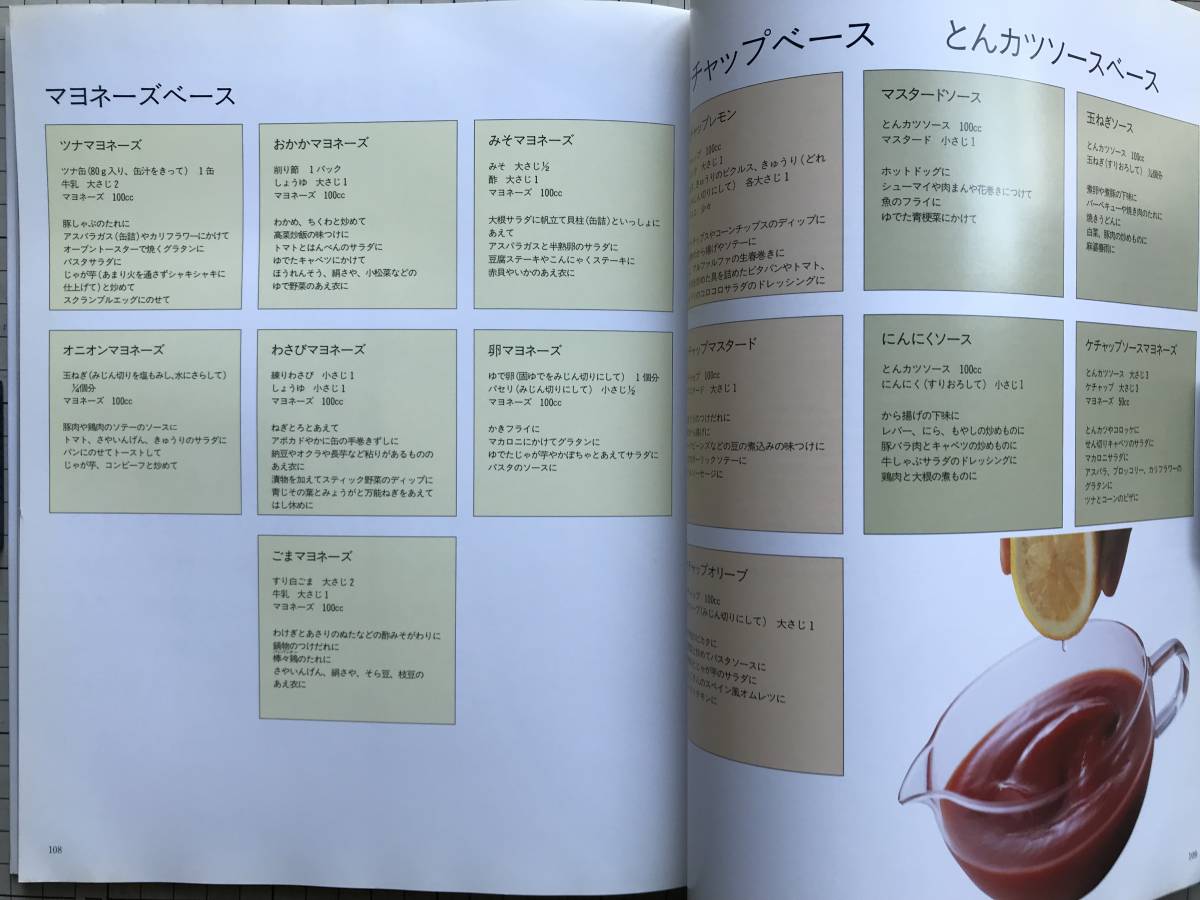 マヨネーズベース
ツナマヨネーズ
ツナ缶(80g入り、缶汁をきって) 1缶
牛乳 大さじ2
マヨネーズ 100cc
豚しゃぶのたれに
アスパラガス(缶詰)やカリフラワーにかけて
オーブントースターで焼くグラタンに
パスタサラダに
じゃが芋(あまり火を通さずシャキシャキに
仕上げて)と炒めて
スクランブルエッグにのせて
おかかマヨネーズ
削り節 1パック
しょうゆ 大さじ1
マヨネーズ 100cc
わかめ、ちくわと炒めて
高菜炒飯の味つけに
トマトとはんぺんのサラダに
ゆでたキャベツにかけて
ほうれんそう、絹さや、小松菜などの
ゆで野菜のあえ衣に
みそマヨネーズ
みそ 大さじ½
酢 大さじ1
マヨネーズ 100cc
大根サラダに帆立て貝柱(缶詰)といっしょに
あえて
アスパラガスと半熟卵のサラダに
豆腐ステーキやこんにゃくステーキに
赤貝やいかのあえ衣に
オニオンマヨネーズ
玉ねぎ(みじん切りを塩もみし、水にさらして)
¼個分
マヨネーズ 100cc
豚肉や鶏肉のソテーのソースに
トマト、さやいんげん、きゅうりのサラダに
パンにのせてトーストして
じゃが芋、コンビーフと炒めて
わさびマヨネーズ
練りわさび 小さじ1
しょうゆ 小さじ1
マヨネーズ 100cc
ねぎとろとあえて
アボカドやかに缶の手巻きずしに
納豆やオクラや長芋など粘りがあるものの
あえ衣に
漬物を加えてスティック野菜のディップに
青じその葉とみょうがと万能ねぎをあえて
はし休めに
卵マヨネーズ
ゆで卵(固ゆでをみじん切りにして) 1個分
パセリ(みじん切りにして) 小さじ½
マヨネーズ 100cc
かきフライに
マカロニにかけてグラタンに
ゆでたじゃが芋やかぼちゃとあえてサラダに
パスタのソースに
ごまマヨネーズ
すり白ごま 大さじ2
牛乳 大さじ1
マヨネーズ 100cc
わけぎとあさりのぬたなどの酢みそがわりに
鍋物のつけだれに
棒々鶏のたれに
さやいんげん、絹さや、そら豆、枝豆の
あえ衣に
108
チャップベース
チャップレモン
100cc
大さじ1
きゅうりのピクルス、きゅうり(どれ
じん切りにして) 各大さじ1
少々
プスやコーンチップスのディップに
から揚げやソテーに
アルファルファの生春巻きに
めた具を詰めたピタパンやトマト、
のコロコロサラダのドレッシングに
チャップマスタード
チャップ 100cc
スタード 大さじ1
のつけだれに
から揚げに
ビーンズなどの豆の煮込みの味つけに
ガーリックソテーに
ソーセージに
チャップオリーブ
チャップ 100cc
ーブ(みじん切りにして) 大さじ1
ピカタに
炒めてパスタソースに
とじゃが芋のサラダに
さんのスペイン風オムレツに
チキンに
とんカツソースベース
マスタードソース
とんカツソース 100cc
マスタード 小さじ1
ホットドッグに
シューマイや肉まんや花巻きにつけて
魚のフライに
ゆでた青梗菜にかけて
玉ねぎソース
とんカツソース 100cc
玉ねぎ(すりおろして) ¼個分
煮卵や煮豚の下味に
バーベキューや焼き肉のたれに
焼きうどんに
白菜、豚肉の炒めものに
麻婆春雨に
にんにくソース
とんカツソース 100cc
にんにく(すりおろして) 小さじ1
から揚げの下味に
レバー、にら、もやしの炒めものに
豚バラ肉とキャベツの炒めものに
牛しゃぶサラダのドレッシングに
鶏肉と大根の煮ものに
ケチャップソースマヨネーズ
とんカツソース 大さじ3
ケチャップ 大さじ3
マヨネーズ 50cc
とんカツやコロッケに
せん切りキャベツのサラダに
マカロニサラダに
アスパラ、ブロッコリー、カリフラワーの
グラタンに
ツナとコーンのピザに
109